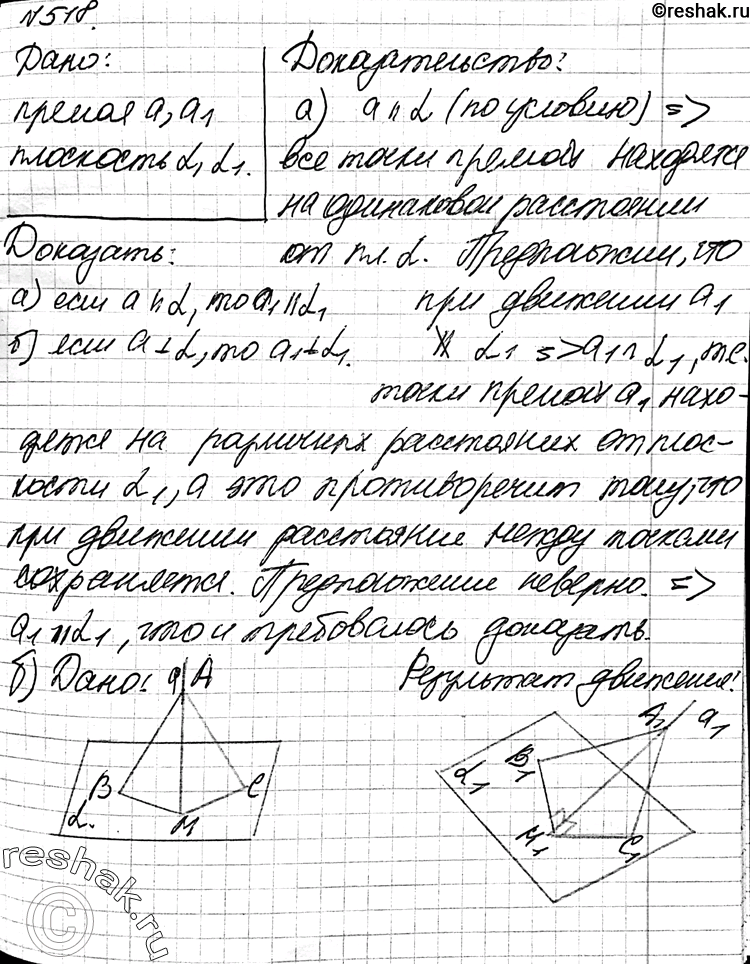 ©reshak.ru
N518.
Дано:
прямая a, a₁
плоскость α, α₁.
Доказать:
а) если a ∥ α, то a₁ ∥ α₁
б) если a ⊥ α, то a₁ ⊥ α₁.
Доказательство:
а) a ∥ α (по условию) =>
все точки прямой находятся
на одинаковом расстоянии
от пл. α. Предположим, что
при движении a₁
∦ α₁ => a₁ ∩ α₁, т.е.
точки прямой a₁ нахо-
дятся на различных расстояниях от плос-
кости α₁, а это противоречит тому, что
при движении расстояние между точками
сохраняется. Предположение неверно. =>
a₁ ∥ α₁, что и требовалось доказать.
б) Дано:
a A
B C
α. M
Результат движения:
A₁ a₁
α₁ B₁
M₁ C₁
reshak.ru
©